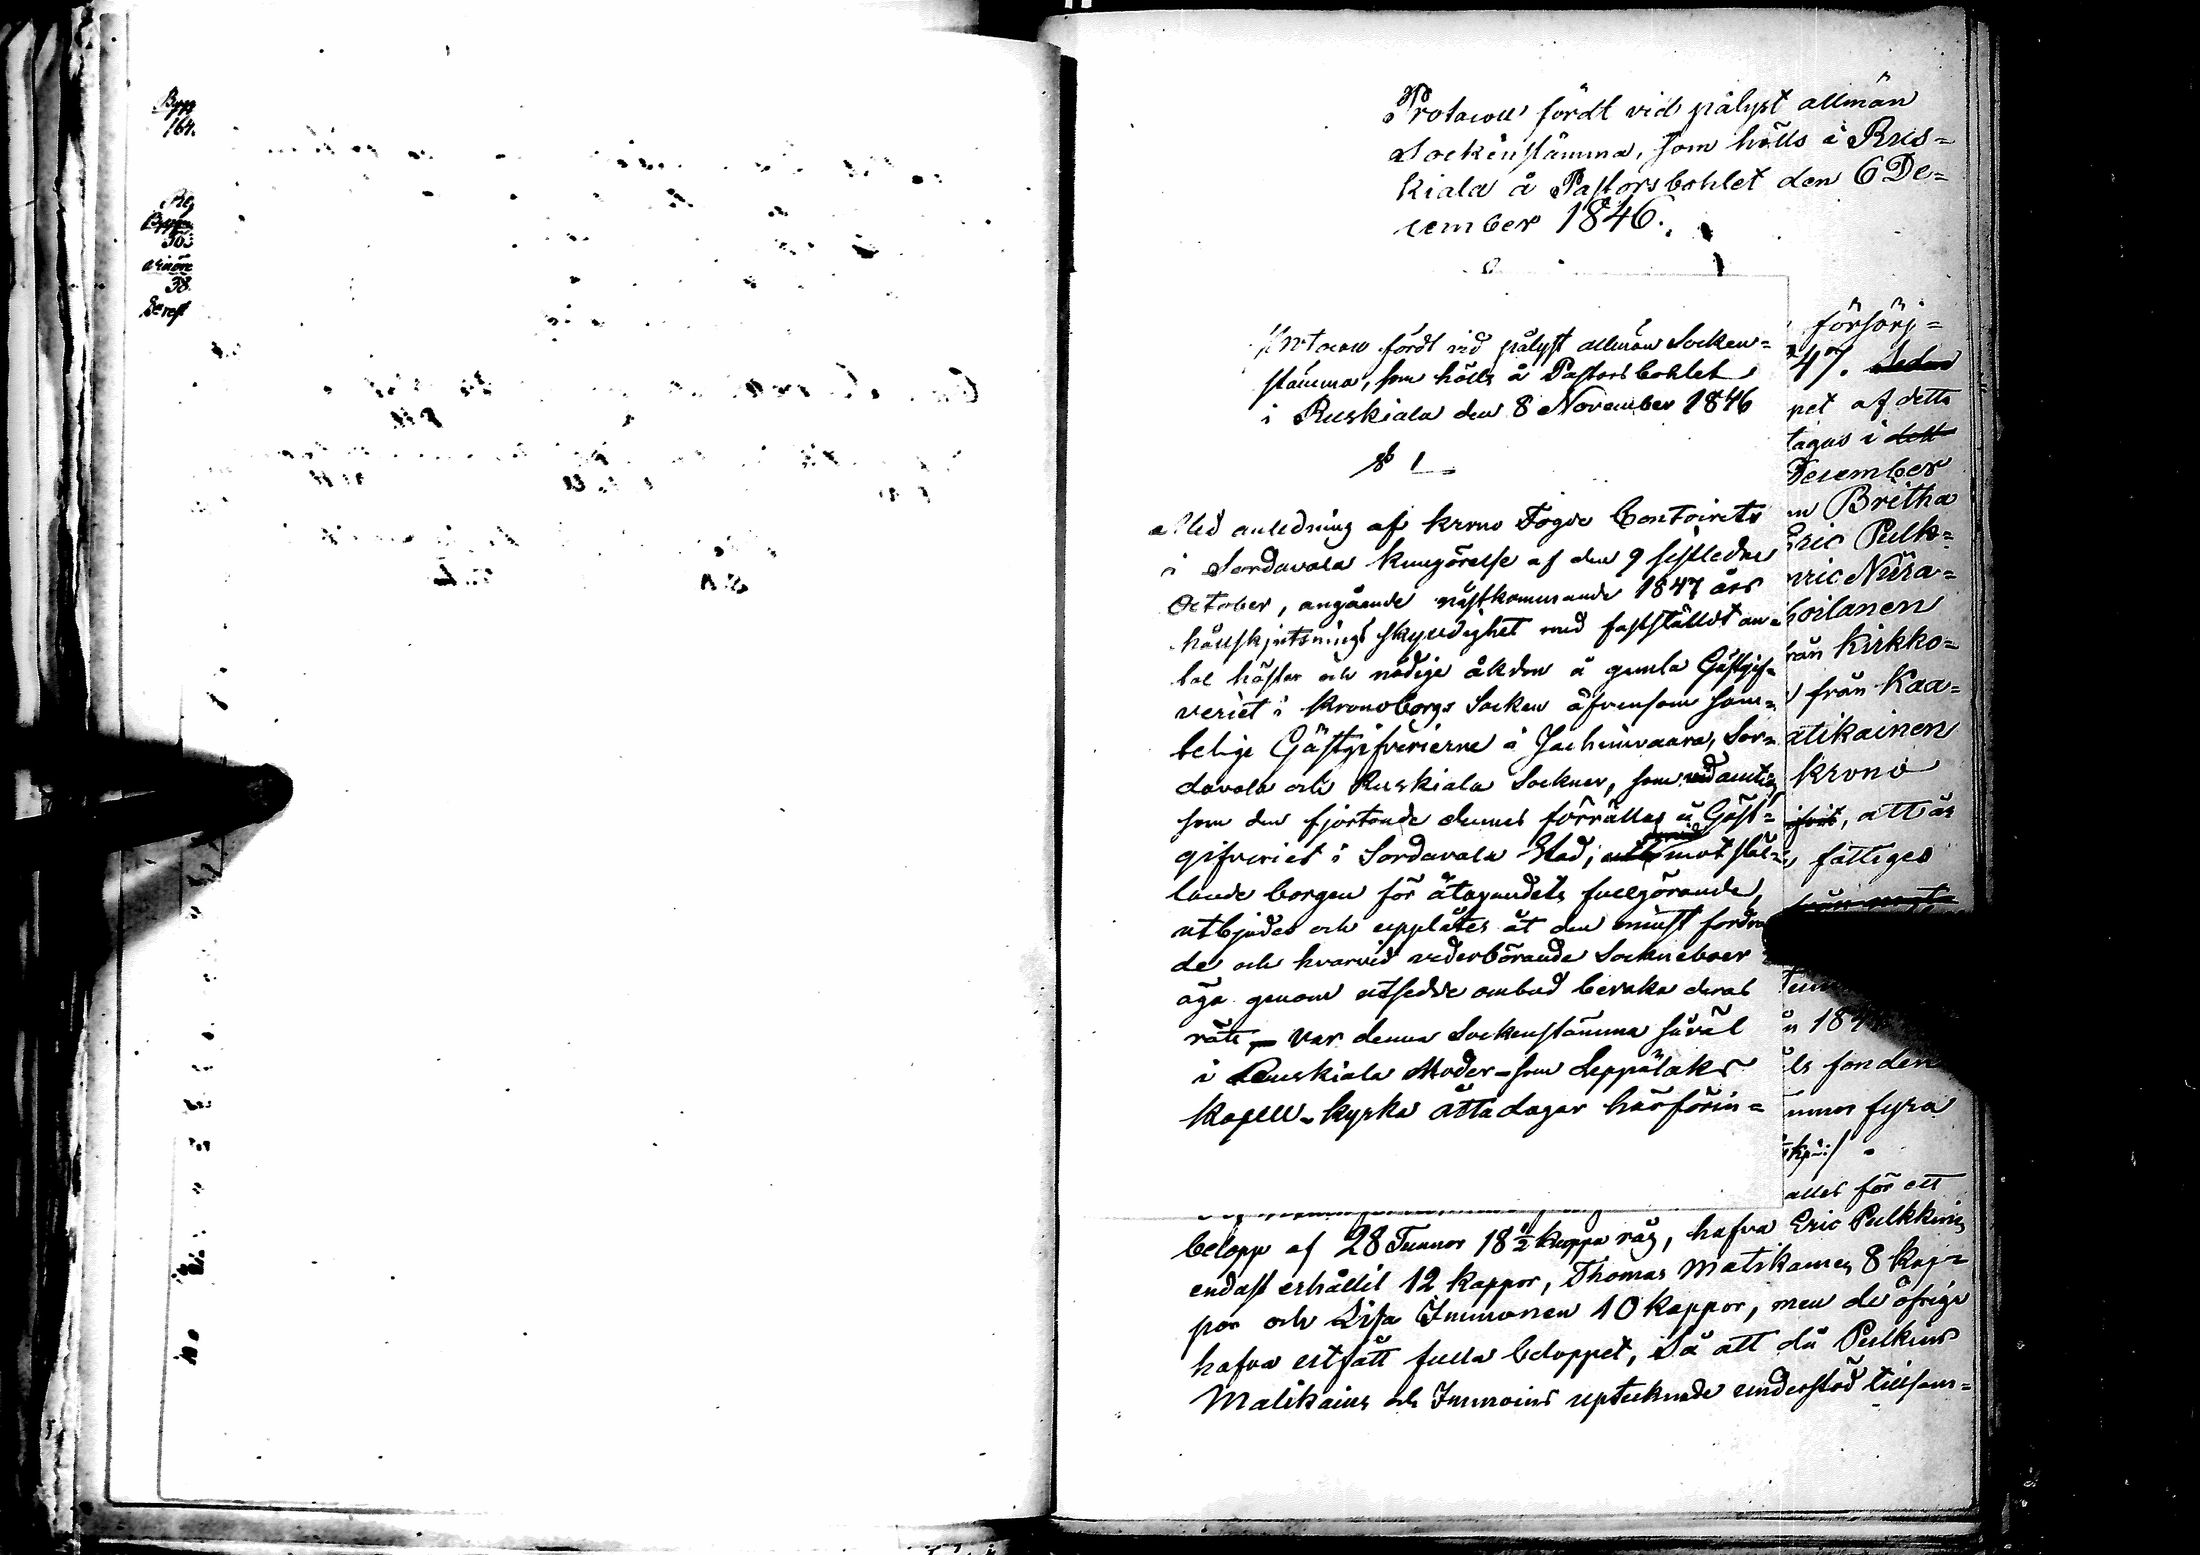 Bygg
164.
38
Protocoll fördt vid pålyst allmän
Sockenstämma, som hölls i Rus=
kiala å Pastorsbohlet den 6 De=
cember 1846.
Protocoll fördt vid pålyst allmän Socken=
stämma, som hölls å Pastorsbohlet
i Ruskiala den 8 November 1846
§ 1
Med anledning af Krono Fogde Contoirets
i Sordavala kungörelse af den 9 sistledne
October, angående nästkommande 1847 års
hållskjutsnings skyldighet med faststäldt an=
tal hästar och nödige åkdon å gamla Gästgif=
veriet i Kronoborgs Socken äfvensom sam=
telige Gästgifverierne i Jachimvaara, Sor=
davala och Ruskiala Socknar, som
som den fjortonde dennes förrättas å Gäst=
gifveriet i Sordavala Stad, mot stäl=
lande borgen för åtagandets fullgörande,
utbjudes och upplåtes åt den minst fordran
de och hvarvid vederbörande Sockneboer
äga genom utsedde ombud bevaka deras
rätt, var denna Sockenstämma såväl
i Ruskiala Moder- som Leppälaks
Kapell-kyrka åtta dagar härförin=
försörj=
47.
pet af detta
tagas i dett
December
Britha
Eric Pulk=
ric Nura=
hoilanen
rån Kirkko=
från Kaa=
atikainen
Krono
att är
fattiges
n 184
ls fonden
unnor fyra
allet för ett
belopp af 28 Tunnor 18 1/2 kappa råg, hafva Eric Pulkkinen
endast erhållit 12 kappor, Thomas Matikainen 8 kap=
por och Lisa Immonen 10 kappor, men de öfrige
hafva erhått fulla beloppet, Så att då Pulkins
Matikains och Immoins uptecknade understöd tillsam=